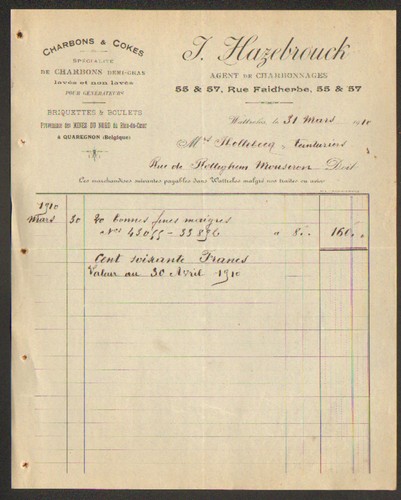 CHARBONS & COKES
SPÉCIALITÉ
DE CHARBONS DEMI-GRAS
lavés et non lavés
POUR GÉNÉRATEURS
BRIQUETTES & BOULETS
Provenance des MINES DU NORD du Rieu-du-Cœur
à QUAREGNON (Belgique)
J. Hazebrouck
AGENT DE CHARBONNAGES
55 & 57, Rue Faidherbe, 55 & 57
Wattrelos, le 31 Mars 1910
Teinturiers
Rue de Mouscron Doit
Les marchandises suivantes payables dans Wattrelos malgré nos traites ou avis:
1910
Mars 30 20 tonnes fines maigres
Nos 45055 - 33896 à 8.- 160.
Cent soixante Francs
Valeur au 30 Avril 1910